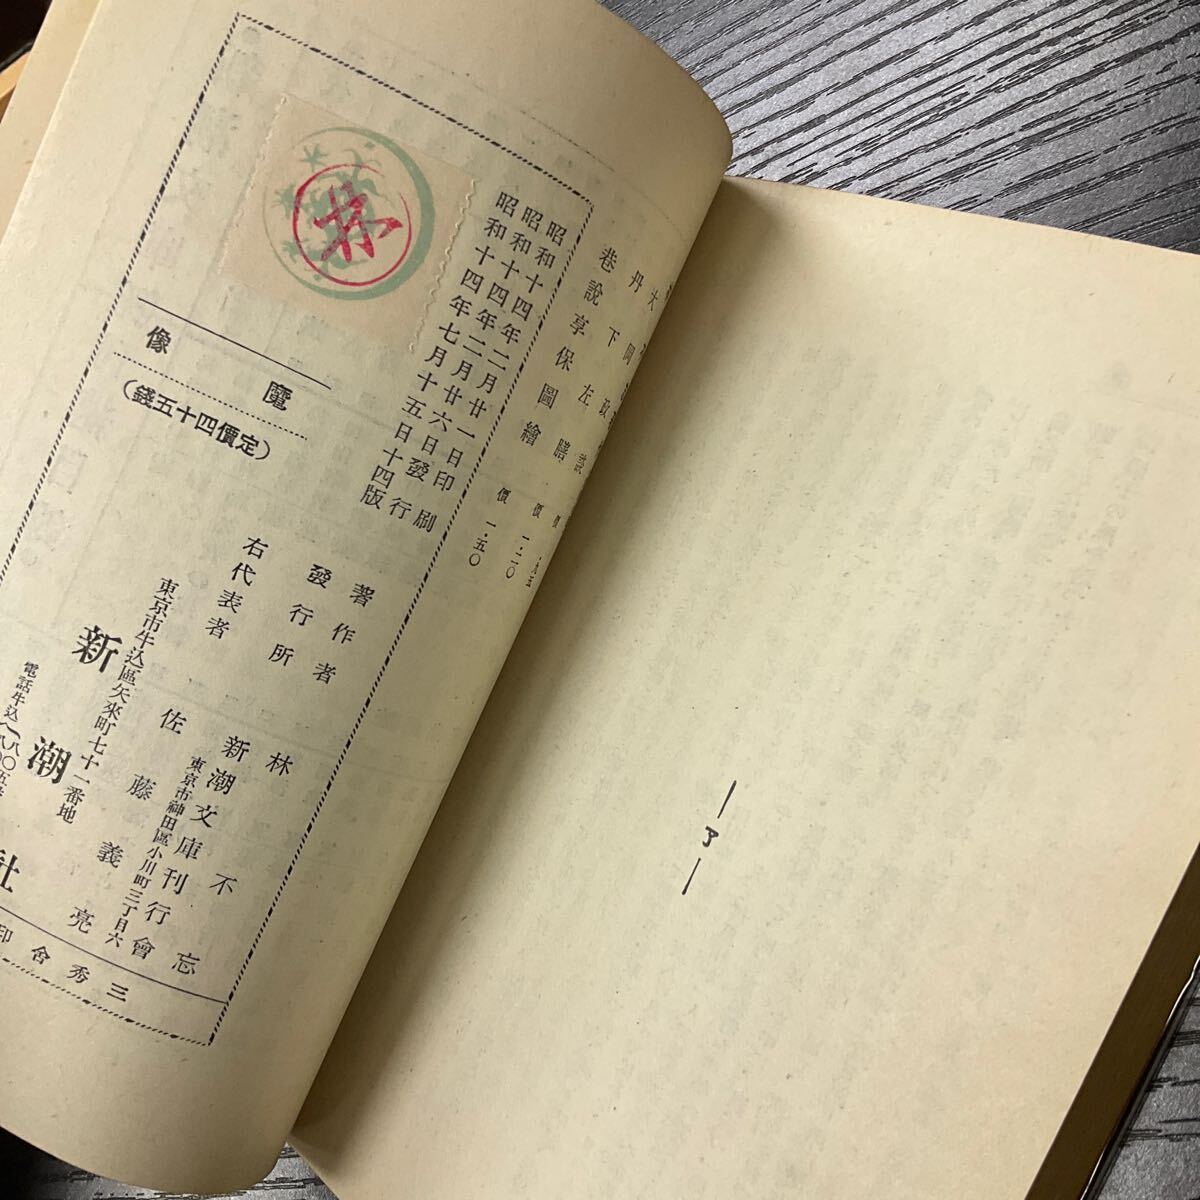 巷說享保圖繪 價 一・五〇
昭和十四年二月廿一日印刷
昭和十四年二月廿六日發行
昭和十四年七月十五日十四版
魔像
(定價四十五錢)
著作者 林不忘
發行所 新潮文庫刊行會
東京市神田區小川町三丁目六
右代表者 佐藤義亮
東京市牛込區矢來町七十一番地
新潮社
電話牛込
三秀舍印
―了―